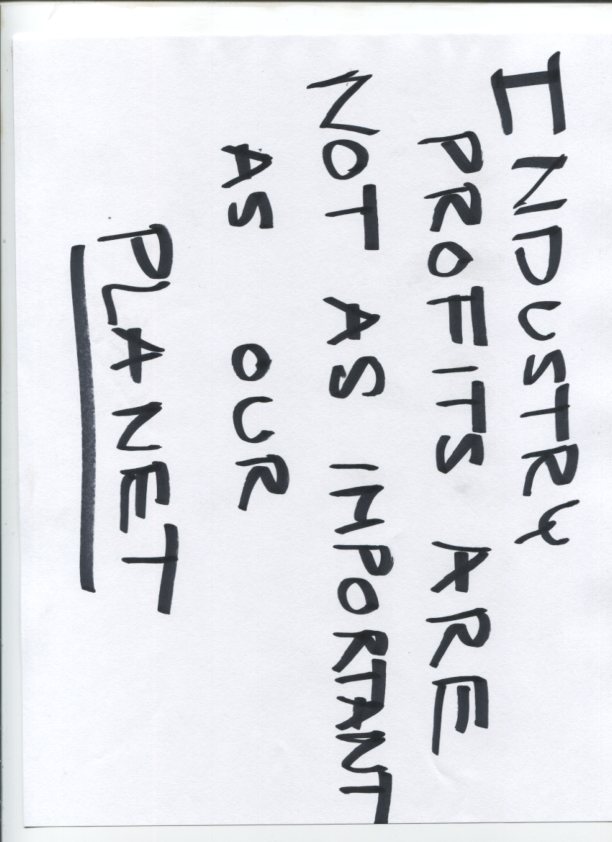 INDUSTRY
PROFITS ARE
NOT AS IMPORTANT
AS OUR
PLANET